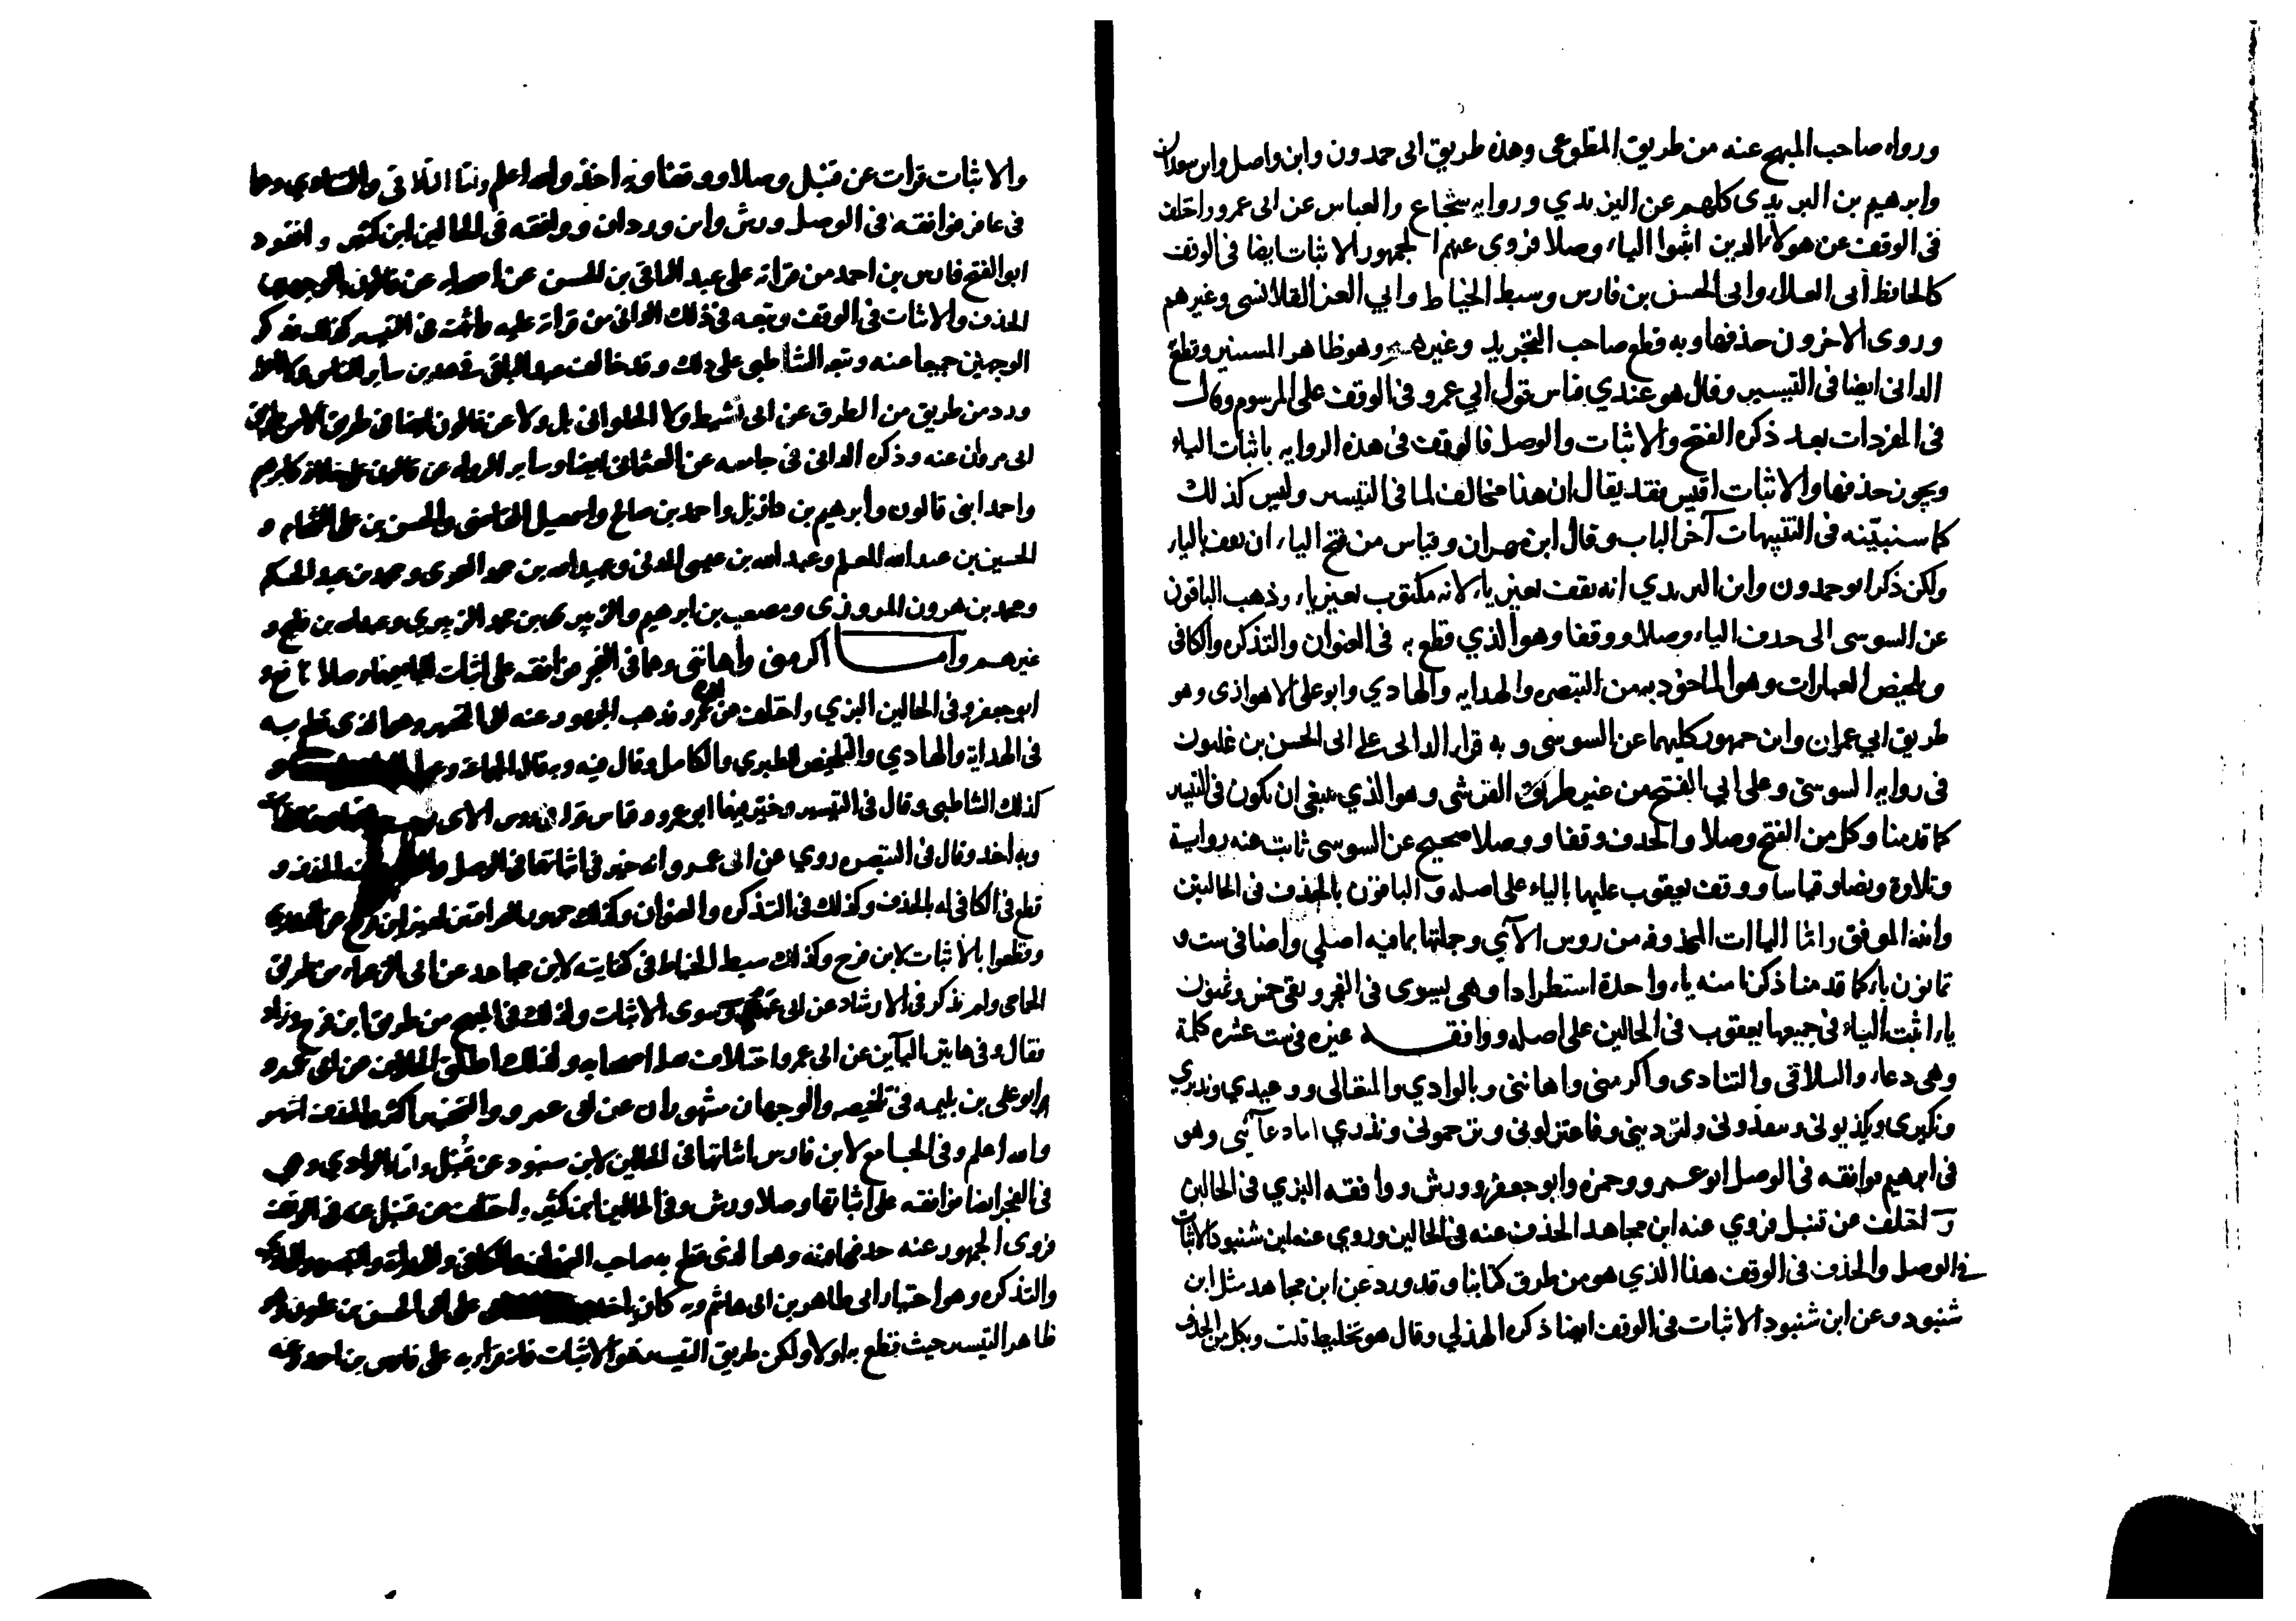 ورواه صاحب المبهج عنه من طريق المطوعى وهذه طريق ابى حمدون وابن واصل وابن سعدان
وابرهيم بن اليزيدى كلهم عن اليزيدي وروايه شجاع والعباس عن ابى عمرو واختلف
فى الوقف عن هولاء الذين اثبتوا الياء وصلا فروى عنهم الجمهور الاثبات ايضا فى الوقف
كالحافظ أبى العلاء وابى الحسن بن فارس وسبط الخياط وابي العز القلانسى وغيرهم
وروى الاخرون حذفها وبه قطع صاحب التجريد وغيره وهو ظاهر المستنير وقطع
الدانى ايضا فى التيسير وقال هو عندي قياس قول ابي عمرو فى الوقف على المرسوم وقال
فى المفردات بعد ذكره الفتح والاثبات والوصل فالوقف فى هذه الروايه باثبات الياء
ويجوز حذفها والاثبات اقيس فقد يقال ان هذا مخالف لما فى التيسير وليس كذلك
كما سنبيّنه فى التنبيهات آخر الباب وقال ابن مهران وقياس من فتح الياء ان يقف بالياء
ولكن ذكر ابو حمدون وابن اليزيدي انه يقف بغير ياء لانه مكتوب بغير ياء وذهب الباقون
عن السوسى الى حذف الياء وصلا ووقفا وهو الذي قطع به فى العنوان والتذكره والكافى
وتلخيص العبارات وهو الماخوذ به من التبصره والهدايه والهادي وابو على الاهوازى وهو
طريق ابي عمران وابن جمهور كليهما عن السوسى وبه قرا الدانى على ابى الحسن بن غلبون
فى روايه السوسى وعلى ابي الفتح من غير طريق القرشى وهو الذي ينبغى ان يكون فى التيسير
كما قدمنا وكل من الفتح وصلا والحذف وقفا ووصلا صحيح عن السوسى ثابت عنه رواية
وتلاوة ونصا وقياسا ووقف يعقوب عليها بالياء على اصله والباقون بالحذف فى الحالين
والله الموفق وامّا الياات المحذوفه من روس الآي وجملتها بما فيه اصلي واضافى ست و
ثمانون ياء كما قدمنا ذكرنا منه ياء واحدة استطرادا وهى يسرى فى الفجر وبقى خمس وثمنون
ياء اثبت الياء فى جميعها يعقوب فى الحالين على اصله ووافقه غيره فى ست عشره كلمة
وهى دعاء والتلاقى والتنادى واكرمنى واهاننى وبالوادي والمتعالى ووعيدي ونذيري
ونكيرى ويكذبونى وينقذونى ولتردينى وفاعتزلونى وترجمونى ونذري اما دعآئى وهو
فى ابرهيم فوافقه فى الوصل ابو عمرو وحمزه وابو جعفر وورش ووافقه البزي فى الحالين
واختلف عن قنبل فروي عنه ابن مجاهد الحذف عنه فى الحالين وروي عنه ابن شنبوذ الاثبات
فى الوصل والحذف فى الوقف هذا الذي هو من طرق كتابنا وقد ورد عن ابن مجاهد مثل ابن
شنبوذ وعن ابن شنبوذ الاثبات فى الوقف ايضا ذكره الهذلي وقال هو تخليط قلت وبكل من الحذف
والاثبات قرات عن قنبل وصلا ووقفا وبه اخذ والله اعلم وامّا التلاقى والتنادي وهما
فى غافر فوافقه فى الوصل ورش وابن وردان ووافقه فى الحالين ابن كثير وانفرد
ابو الفتح فارس بن احمد من قراته على عبد الباقى بن الحسن عن اصحابه عن قالون بالوجهين
الحذف والاثبات فى الوقف وتبعه فى ذلك الدانى من قراته عليه واثبته فى التيسير كذلك فذكر
الوجهين جميعا عنه وتبعه الشاطبى على ذلك وقد خالف عبد الباقى فى هذين ساير الناس ولا
ورد من طريق من الطرق عن ابى نشيط ولا الحلوانى بل ولا عن قالون ايضا فى طريق الا من طريق
ابى مروان عنه وذكره الدانى فى جامعه عن العثمانى ايضا وساير الرواه عن قالون على خلافه كابرهيم
واحمد ابنى قالون وابرهيم بن دازيل واحمد بن صالح واسمعيل القاضى والحسن بن على الشحام و
الحسين بن عبد الله المعلم وعبد الله بن عيسى المدنى وعبيد الله بن محمد العمرى ومحمد بن عبد الحكم
ومحمد بن هرون المروزى ومصعب بن ابرهيم والزبيرى بن محمد الزبيري وعبد الله بن فليح و
غيرهم وامـا اكرمنى واهاننى وهما فى الفجر فوافقه على اثبات الياء فيهما وصلا نافع و
ابو جعفر وفى الحالين البزي واختلف عن ابى عمرو فذهب الجمهور عنه الى التخيير وهو الذى قطع به
فى الهداية والهادي والتلخيص للطبري والكامل وقال فيه وبه قال الجماعة
كذلك الشاطبى وقال فى التيسير وخيّر فيهما ابو عمرو وقياس قوله فى روس الاى
وبه اخذ وقال فى التبصره روي عن ابى عمرو انه خير فى اثباتها فى الوصل
قطع فى الكافى له بالحذف وكذلك فى التذكره والعنوان وكذلك جمهور العراقيين لغير ابن فرح عن الدوري
وقطعوا بالاثبات لابن فرح وكذلك سبط الخياط فى كفايته لابن مجاهد عن ابى الزعراء من طريق
الحمامى ولم يذكر فى الارشاد عن ابى عمرو سوى الاثبات وكذلك فى المبهج من طريق ابن فرح وزاد
فقال وفى هاتين اليآين عن ابى عمرو اختلاف نقله اصحابه وكذلك اطلق الخلاف عن ابى عمرو
ابو على بن بليمه فى تلخيصه والوجهان مشهوران عن ابى عمرو والتخيير اكثر والحذف اشهر
والله اعلم وفى الجامع لابن فارس اثباتها فى الحالين لابن شنبوذ عن قُنبل وامّا بالوادي وهى
فى الفجر ايضا فوافقه على اثباتها وصلا ورش وفى الحالين ابن كثير واختلف عن قنبل عنه فى الوقف
فروى الجمهور عنه حذفها منه وهو الذى قطع به صاحب العنوان والكافى والهداية والتبصره والهادي
والتذكره وهو اختيار ابى طاهر بن ابى هاشم وبه كان ياخذ على ابى الحسن بن غلبون وهو
ظاهر التيسير حيث قطع به اولا ولكن طريق التيسير هو الاثبات فانه قرا به على فارس بن احمد وعنه